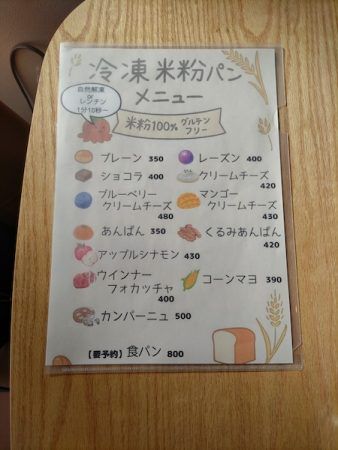 冷凍米粉パン
メニュー
自然解凍
or
レンチン
1分10秒〜
米粉100% グルテン
フリー
プレーン 350
レーズン 400
ショコラ 400
クリームチーズ
420
ブルーベリー
クリームチーズ
480
マンゴー
クリームチーズ
430
あんぱん 350
くるみあんぱん
420
アップルシナモン 430
ウインナー
フォカッチャ
400
コーンマヨ 390
カンパーニュ 500
【要予約】食パン 800